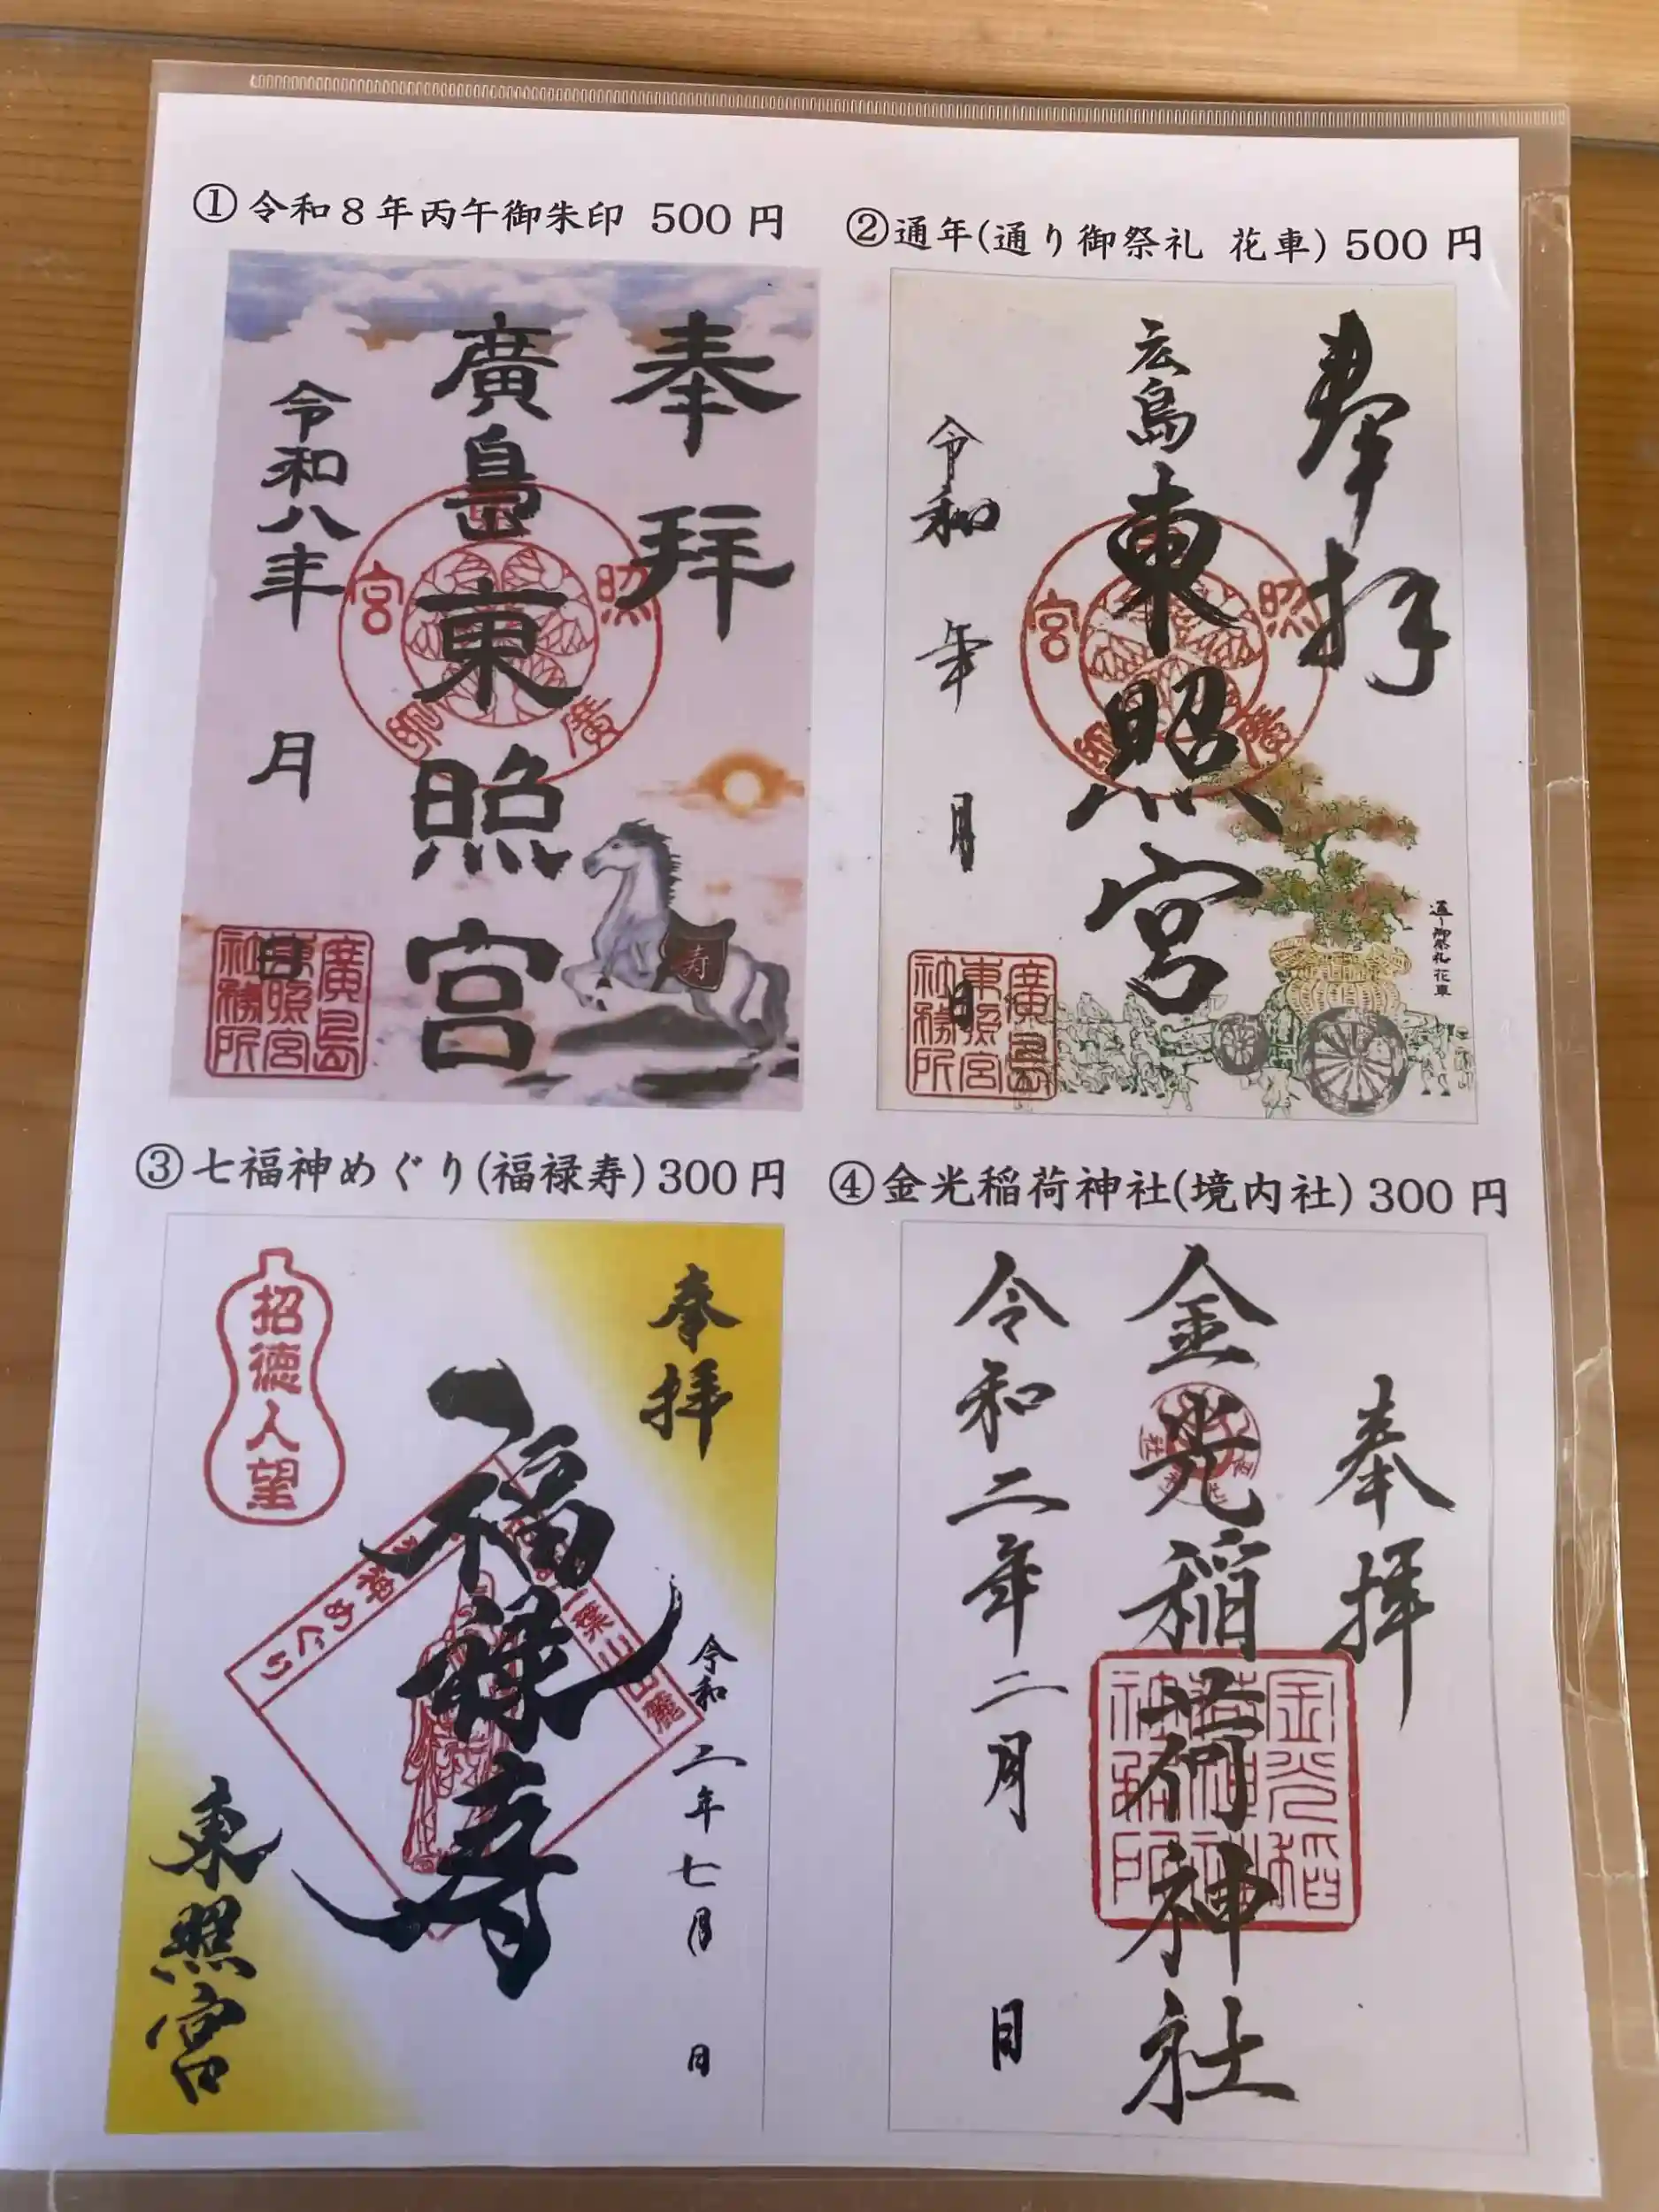 ①令和8年丙午御朱印 500円
奉拝
廣島東照宮
令和八年 月 日
照
宮
廣
島
寿
廣島
東照宮
社務所
②通年(通り御祭礼 花車) 500円
奉拝
広島東照宮
令和 年 月 日
照
宮
廣
島
通り御祭礼 花車
廣島
東照宮
社務所
③七福神めぐり(福禄寿)300円
奉拝
招徳人望
福禄寿
神めぐり
令和二年七月 日
東照宮
④金光稲荷神社(境内社)300円
奉拝
金光稲荷神社
令和二年二月 日
金光稲
荷神社
社務所